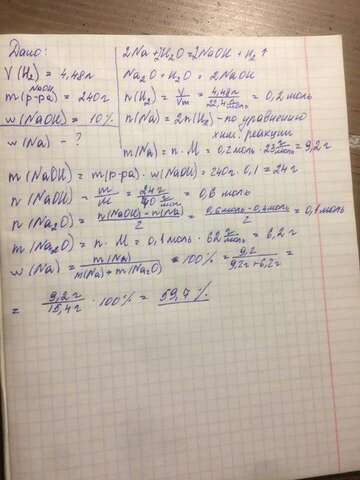 Дано:
V(H₂) = 4,48л
m(р-ра) NaOH = 240г
w(NaOH) = 10%
w(Na) - ?
2Na + 2H₂O = 2NaOH + H₂↑
Na₂O + H₂O = 2NaOH
n(H₂) = V/Vm = 4,48л / 22,4 л/моль = 0,2 моль
n(Na) = 2n(H₂) - по уравнению
хим. реакции
m(Na) = n · M = 0,2моль · 23 г/моль = 9,2г
m(NaOH) = m(р-ра) · w(NaOH) = 240г · 0,1 = 24г
n(NaOH) = m/M = 24г / 40 г/моль = 0,6 моль
n(Na₂O) = n(NaOH) - n(Na) / 2 = 0,6моль - 0,4моль / 2 = 0,1 моль
m(Na₂O) = n · M = 0,1 моль · 62 г/моль = 6,2г
w(Na) = m(Na) / m(Na) + m(Na₂O) · 100% = 9,2 / 9,2г + 6,2г =
= 9,2г / 15,4г · 100% = 59,7%